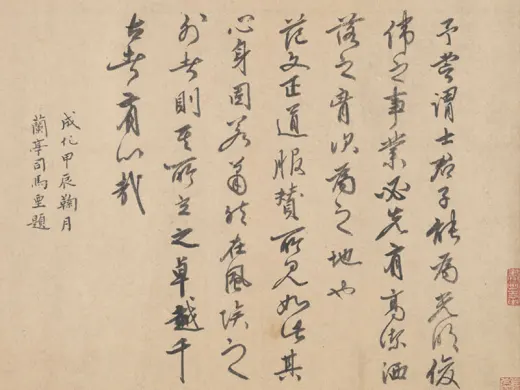 予嘗謂士君子能為光明俊
偉之事業必先有高潔洒
落之胷次為之地也
范文正道服賛所見如此其
心身固若蕭然在風埃之
外者則其所立之卓越千
古者有以哉
成化甲辰鞠月
蘭亭司馬垔題